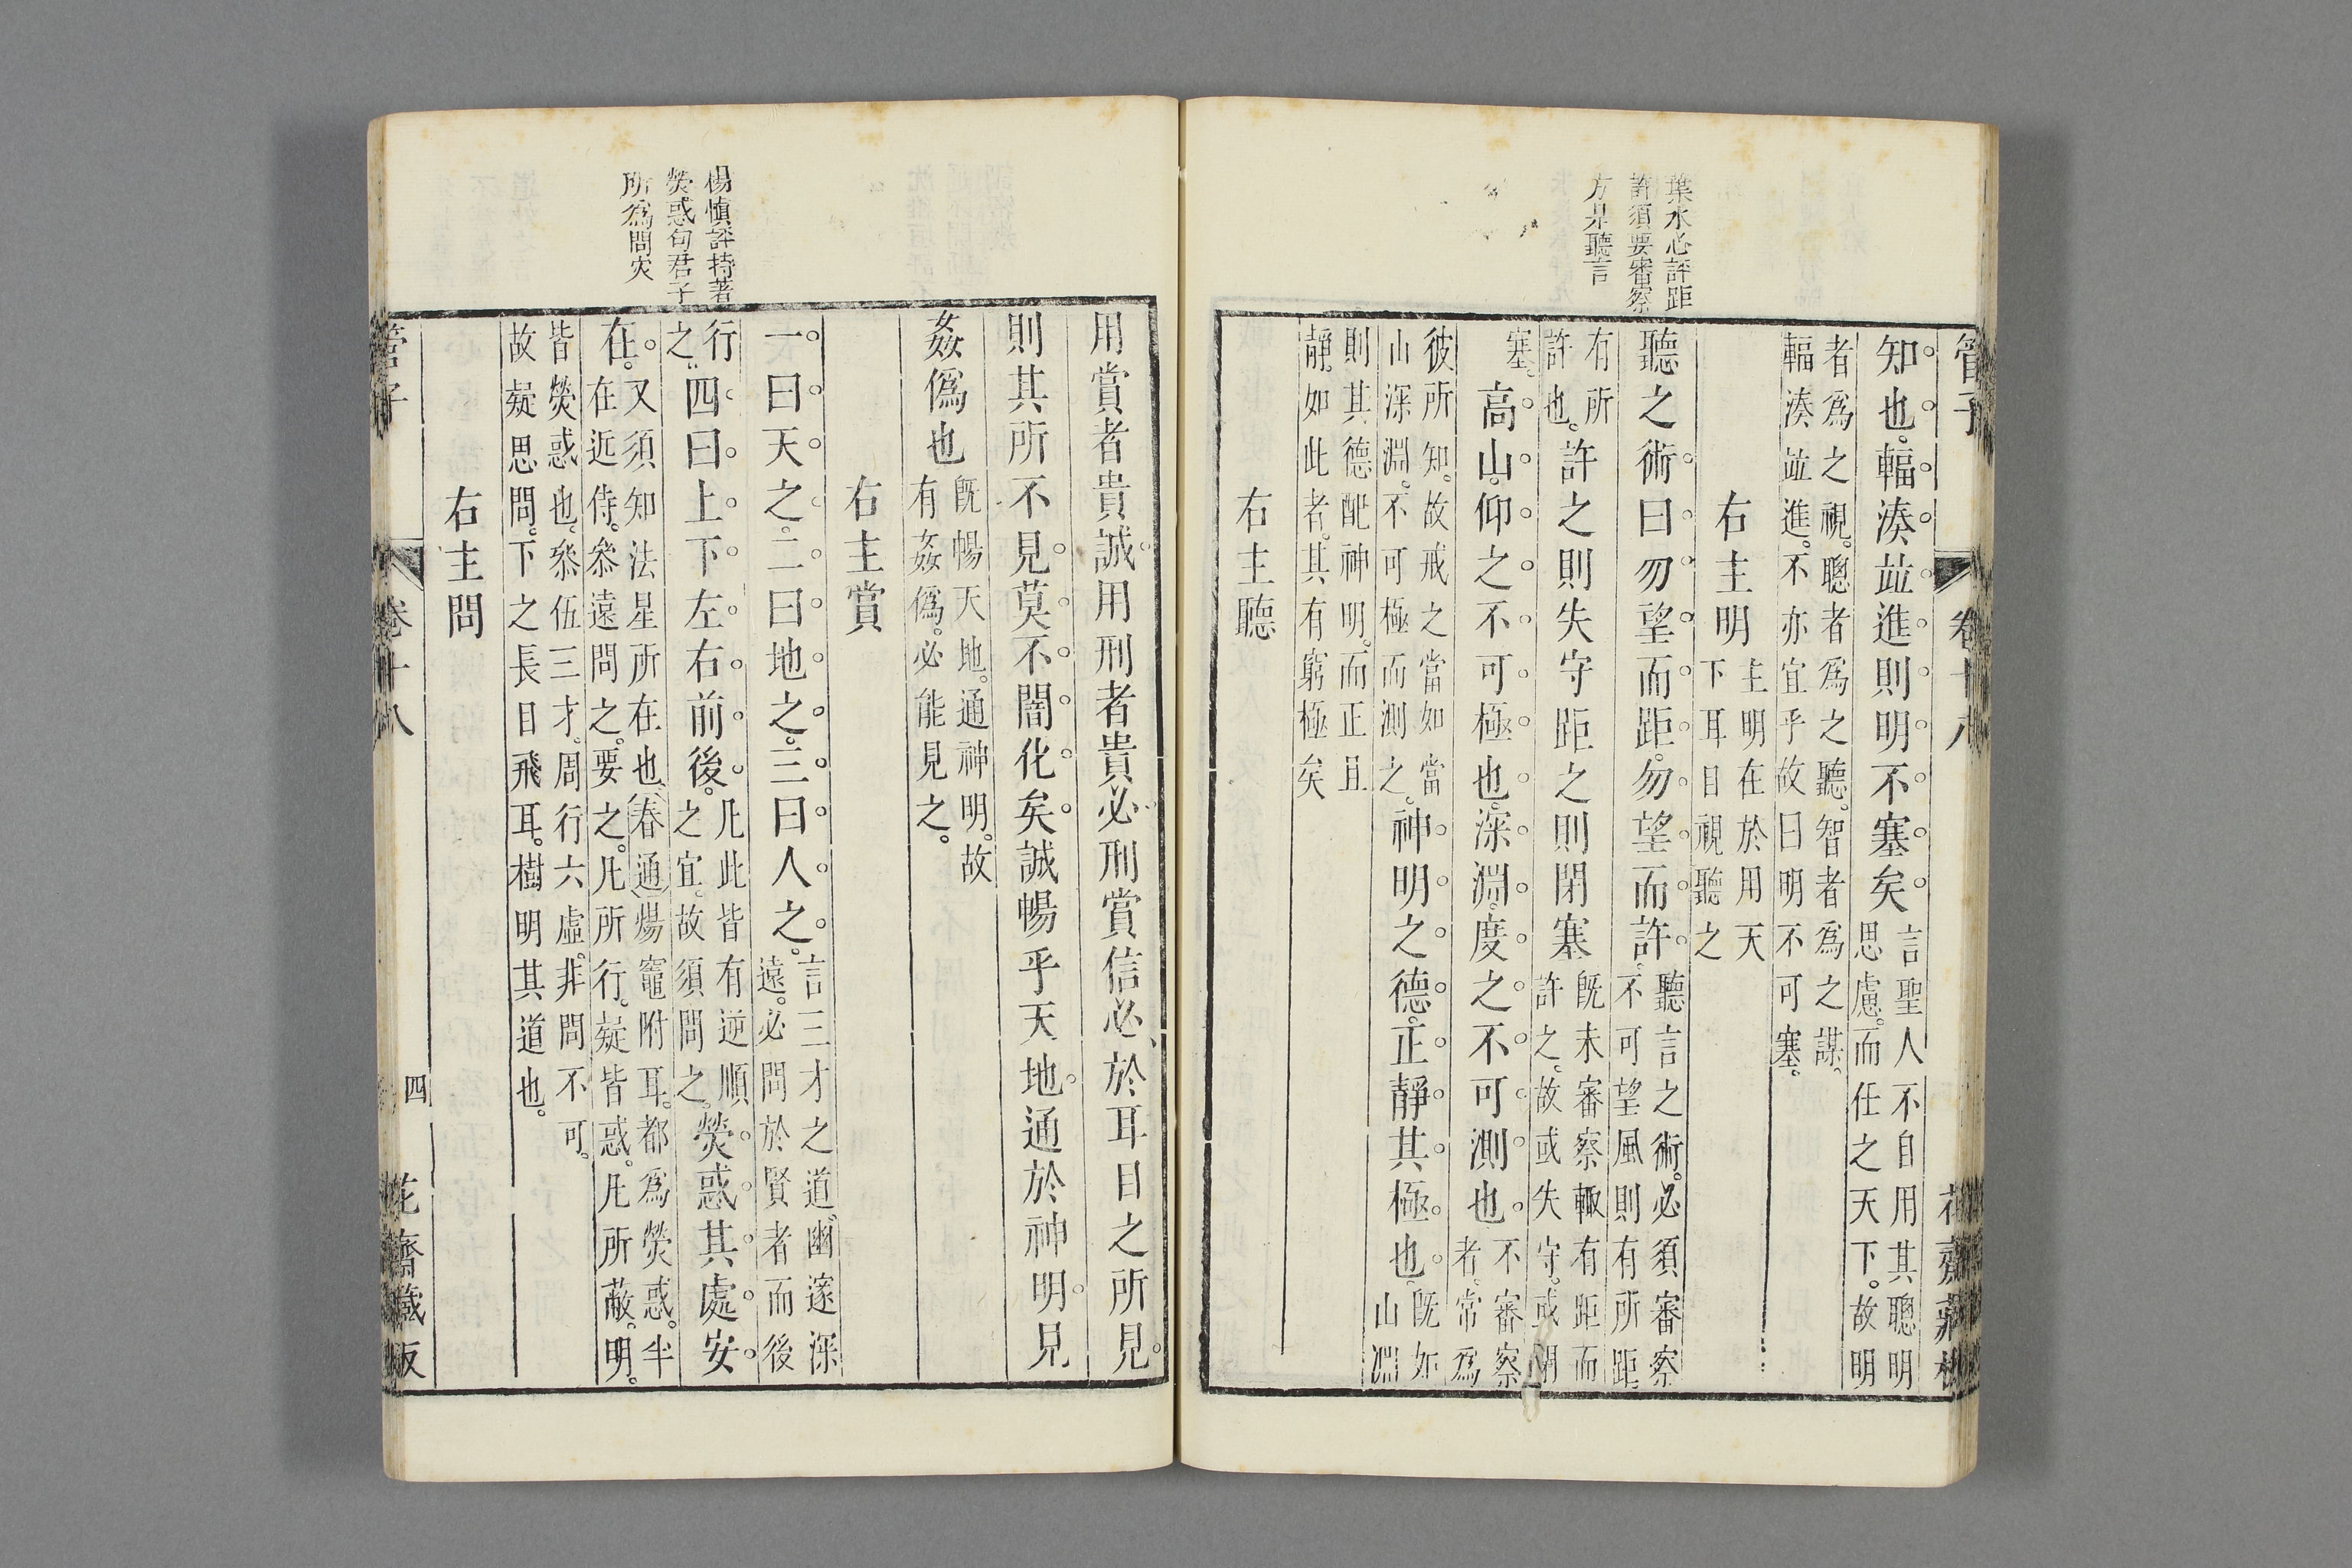 葉水心評距
許須要審察
方是聽言
管子
卷十八
花齋藏板
知也輻湊並進則明不塞矣
言聖人不自用其聰明
思慮而任之天下故明
者爲之視聰者爲之聽智者爲之謀
輻湊並進不亦宜乎故曰明不可塞
右主明
主明在於用天
下耳目視聽之
聽之術曰勿望而距勿望而許
聽言之術必須審察
不可望風則有所距
有所
許也
許之則失守距之則閉塞
既未審察輙有距而
許之故或失守或閉
塞
高山仰之不可極也深淵度之不可測也
不審察
者常爲
彼所知故戒之當如當
山深淵不可極而測之
神明之德正靜其極也
既如
山淵
則其德配神明而正且
靜如此者其有窮極矣
右主聽
楊慎評持著
熒惑句君子
所爲問灾
用賞者貴誠用刑者貴必刑賞信必於耳目之所見
則其所不見莫不闇化矣誠暢乎天地通於神明見
姦僞也
既暢天地通神明故
有姦僞必能見之
右主賞
一曰天之二曰地之三曰人之
言三才之道幽邃深
遠必問於賢者而後
行
之
四曰上下左右前後
凡此皆有逆順
之宜故須問之
熒惑其處安
在
又須知法星所在也春通煬竈附耳都爲熒惑半
在近侍叅遠問之要之凡所行疑皆惑凡所蔽明
皆熒惑也叅伍三才周行六虛非問不可
故疑思問下之長目飛耳樹明其道也
右主問
管子
卷十八
四
花齋藏板